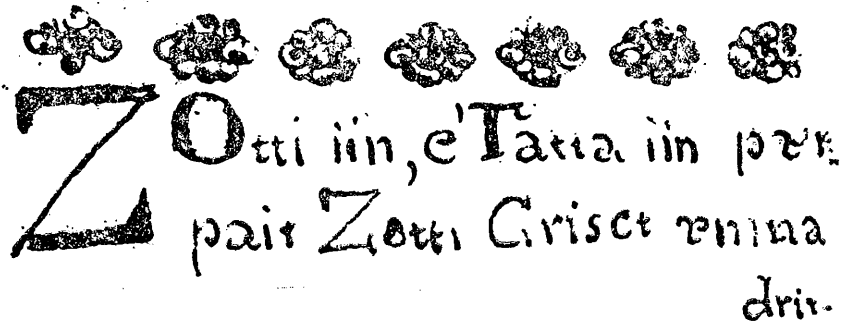 ZOtti iin, e' Tatta iin pær-
pait Zotti Criset ænina
drir.